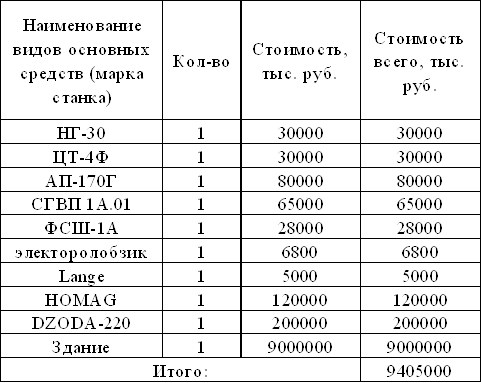 Наименование видов основных средств (марка станка) Кол-во Стоимость, тыс. руб. Стоимость всего, тыс. руб.
НГ-30 1 30000 30000
ЦТ-4Ф 1 30000 30000
АП-170Г 1 80000 80000
СГВП 1А.01 1 65000 65000
ФСШ-1А 1 28000 28000
электоролобзик 1 6800 6800
Lange 1 5000 5000
HOMAG 1 120000 120000
DZODA-220 1 200000 200000
Здание 1 9000000 9000000
Итого: 9405000